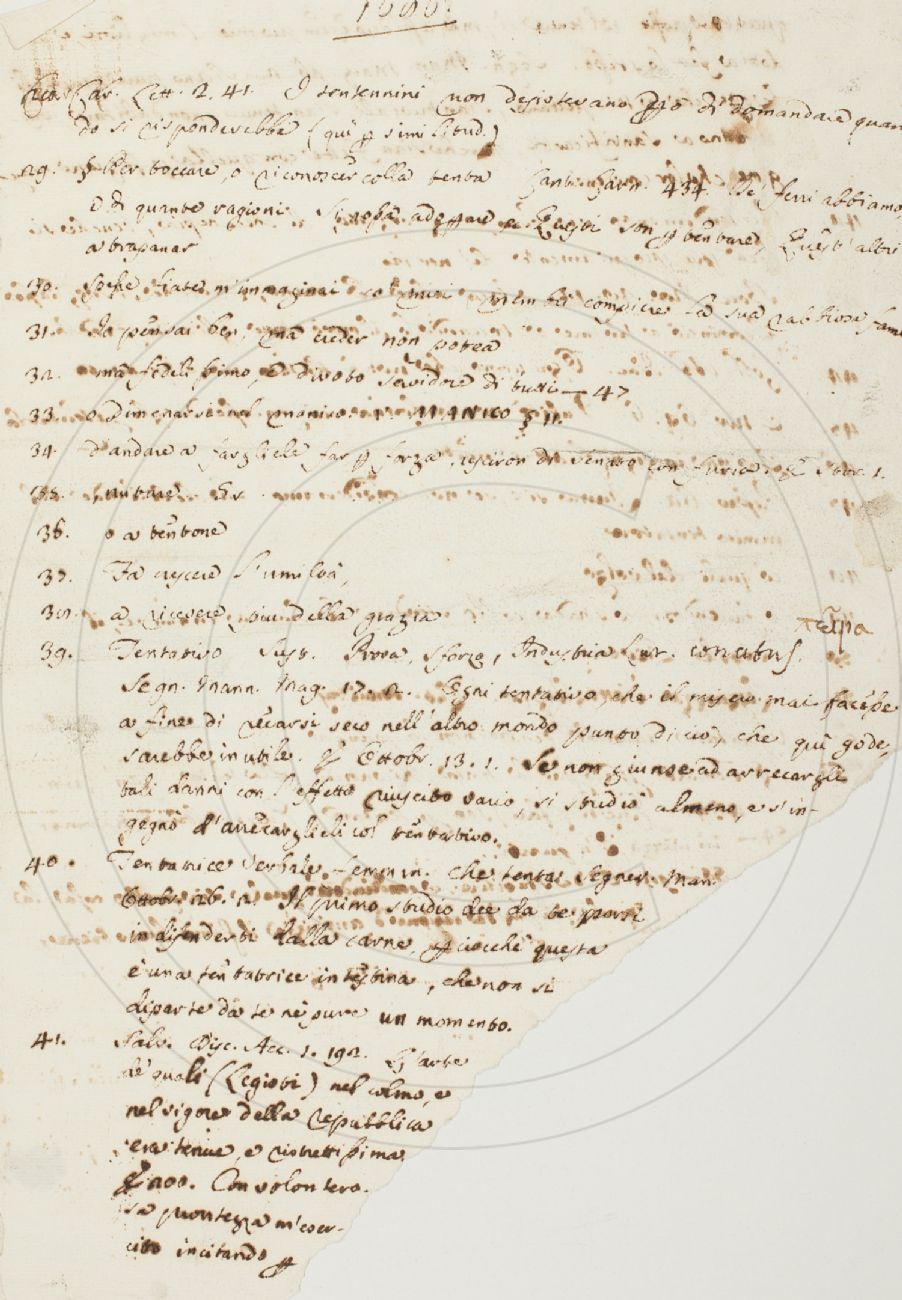 1686.
Lett. 2. 41. I sentennini non desistevano di domandare quan
do si risponderebbe (qui simi litud.)
29. § Per toccare, o riconoscer colla tenta 434. De' ferri abbiamo,
e di quante ragioni son altri
a trapanar
30. Spesse fiate m'immaginai membri compiere la sua rabbiosa fame
31. Io pensai ben, ma creder non potea
32. ma fedelissimo, e divoto servidore di tutti — 47
33. o dimenarsi nel manico. V. MANICO § II.
34. d'andare a fargliele far forza, usciron di con furia. 1.
35.
36. o a tentone
37. Fa crescere l'umiltà,
38. a ricevere più della grazia
39. Tentativo Sust. Prova, sforzo, Industria Lat. conatus. πεῖρα
Segn. Mann. Mag. 17. 2. Ogni tentativo, che il misero mai facesse
a fine di recarsi seco nell'altro mondo punto di ciò, che quì gode,
sarebbe inutile. E Ottobr. 13. 1. Se non giunse ad arrecargli
tali danni con l'effetto riuscito vario, si studiò almeno, e s'in-
gegnò d'arrecarglieli col tentativo.
40. Tentatrice Verbale femmin. Che tenta Segner. Man.
Ottobr. 26. 2. Il primo studio dee da te porsi
in difenderti dalla carne, ciocchè questa
è una tentatrice intestina, che non si
diparte da te nè pure un momento.
41. Salv. Disc. Acc. 1. 192. L'arte
de' quali (Legisti) nel colmo, e
nel vigore della repubblica
era tenue, e ristrettissima
E 200. Con volontero-
sa prontezza m'eser-
cito incitando